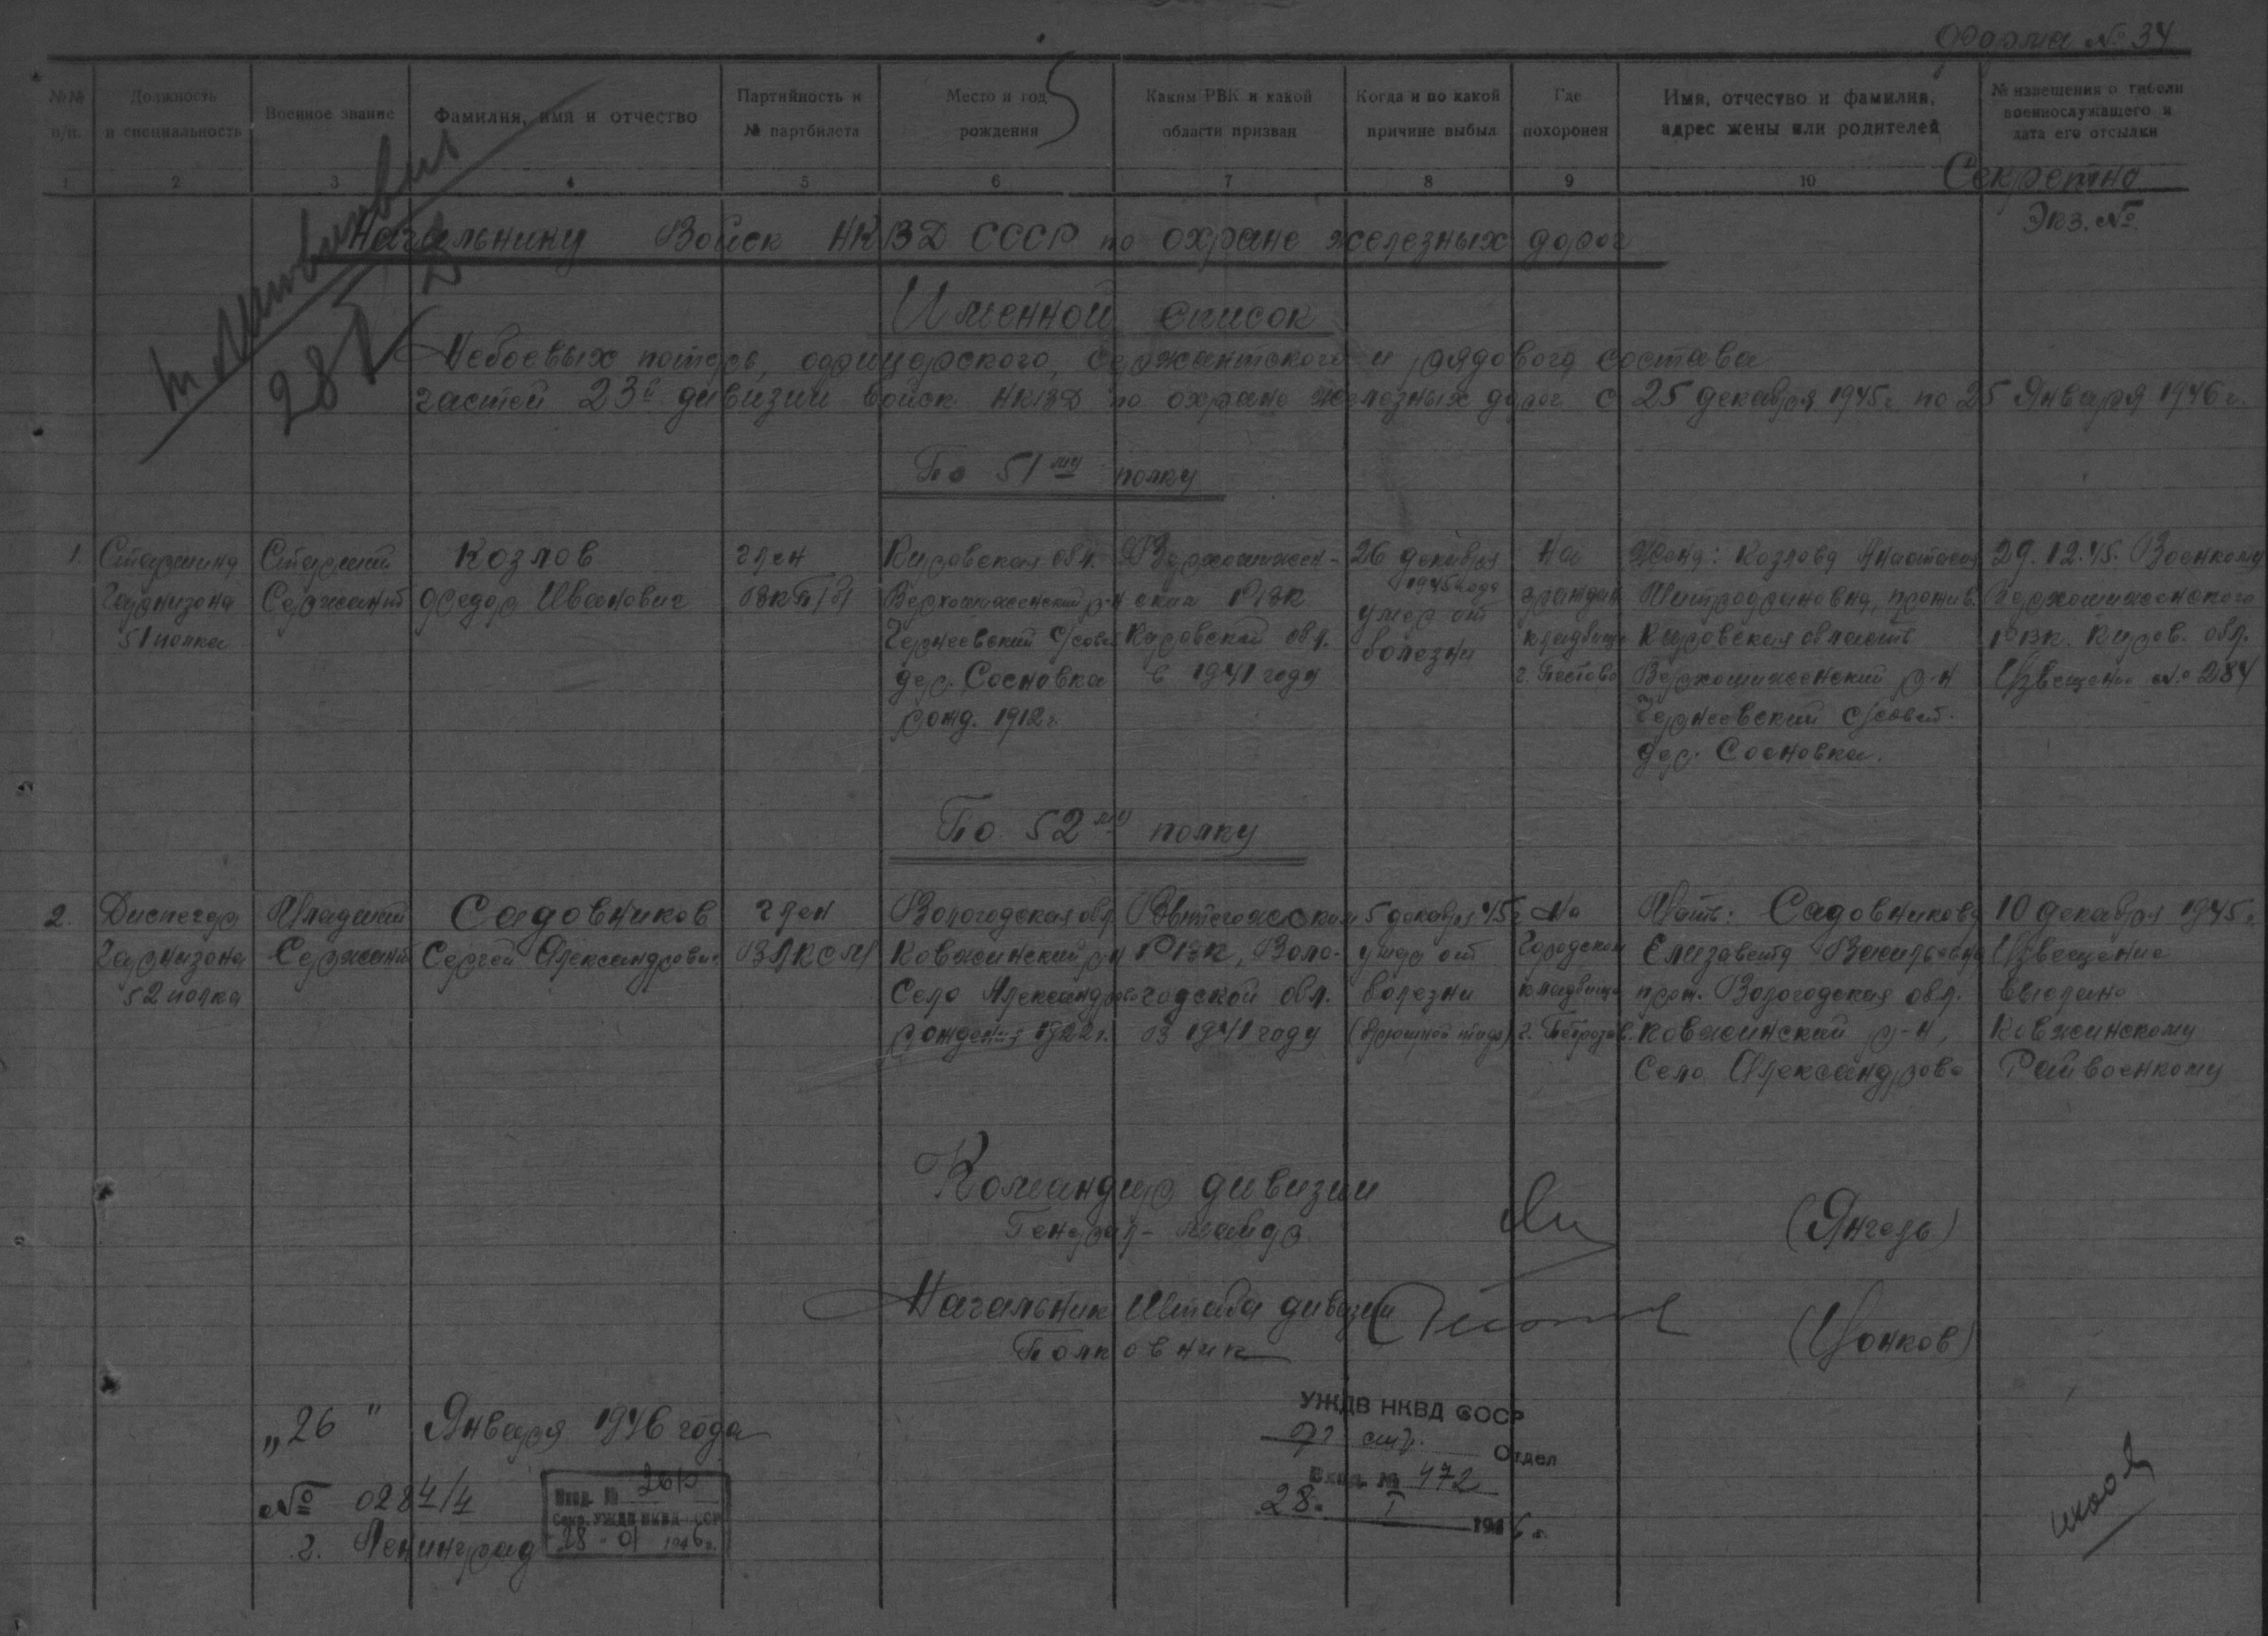 Форма № 34
№№ п/п.
Должность и специальность
Военное звание
Фамилия, имя и отчество
Партийность и № партбилета
Место и год рождения
Каким РВК и какой области призван
Когда и по какой причине выбыл
Где похоронен
Имя, отчество и фамилия, адрес жены или родителей
№ извещения о гибели военнослужащего и дата его отсылки
1 2 3 4 5 6 7 8 9 10
Секретно
Экз. №
Начальнику Войск НКВД СССР по охране железных дорог
Именной список
Небоевых потерь, офицерского, сержантского и рядового состава
частей 23й дивизии войск НКВД по охране железных дорог с 25 декабря 1945г. по 25 Января 1946 г.
По 51му полку
1.
Старшина
Гарнизона
51 полка
Старший
Сержант
Козлов
Федор Иванович
член
ВКП/б/
Кировская обл.
Верхошижемский р-н
Чернеевский с/совет
дер. Сосновка
рожд. 1912г.
Верхошижем-
ским РВК
Кировской обл.
в 1941 году
26 декабря
1945 года
умер от
болезни
На
граждан
кладбище
г. Пестово
Жена: Козлова Анастасия
Митрофановна, прожив.
Кировская область
Верхошижемский р-н
Чернеевский с/совет.
дер. Сосновка.
29.12.45. Военкому
Верхошижемского
РВК. Киров. обл.
Извещение № 284
По 52му полку
2.
Диспечер
Гарнизона
52 полка
Младший
Сержант
Садовников
Сергей Александрович
член
ВЛКСМ
Вологодская обл.
Ковжинский р-н
Село Александрово
рождения 1922г.
Вытегожским
РВК, Воло-
годской обл.
в 1941 году
5 декабря 45г.
умер от
болезни
(брюшной тиф)
На
Городском
кладбище
г. Петрозав.
Мать: Садовникова
Елизавета Васильевна
прож. Вологодская обл.
Ковжинский р-н,
Село Александрово
10 декабря 1945г.
Извещение
выслано
Ковжинскому
Райвоенкому
Командир дивизии
Генерал-майор
(Янгель)
Начальник Штаба дивизии
Полковник
(Цонков)
„26" Января 1946 года
№ 0284/4
г. Ленинград
Вход. №
Секр. УЖДВ НКВД СССР
„28" 01 1946г.
УЖДВ НКВД СССР
Отдел
Вход. № 472
28. I 1946 г.